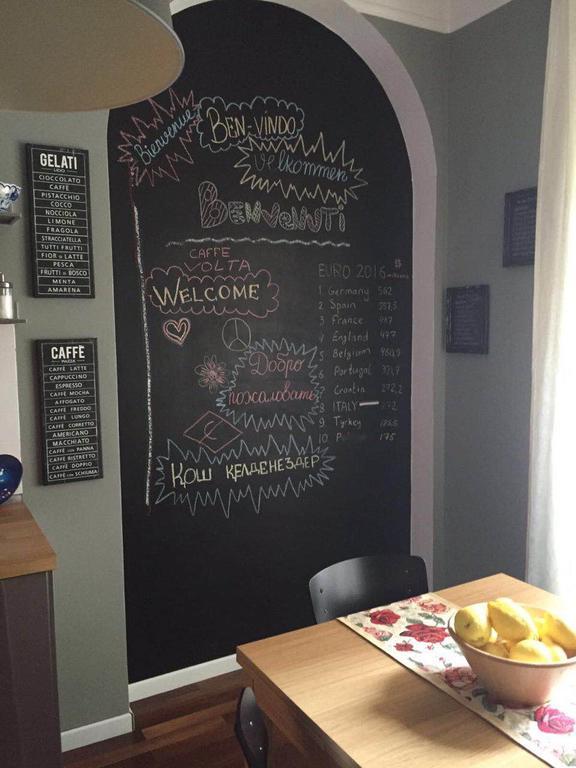 Bienvenue
BEN-VINDO
Velkommen
BENVENUTI
CAFFE
VOLTA
WELCOME
Добро
пожаловать
КОШ КЕЛДЕНЕЗДЕР
EURO 2016
1 Germany 562
2 Spain
3 France
4 England 477
5 Belgium
6 Portugal
7 Croatia 272,2
8 ITALY
9 Tyrkey
10 175
GELATI
CIOCCOLATO
CAFFÈ
PISTACCHIO
COCCO
NOCCIOLA
LIMONE
FRAGOLA
STRACCIATELLA
TUTTI FRUTTI
FIOR DI LATTE
PESCA
FRUTTI DI BOSCO
MENTA
AMARENA
CAFFÈ
CAFFÈ LATTE
CAPPUCCINO
ESPRESSO
CAFFÈ MOCHA
AFFOGATO
CAFFÈ FREDDO
CAFFÈ LUNGO
CAFFÈ CORRETTO
AMERICANO
MACCHIATO
CAFFÈ RISTRETTO
CAFFÈ CON PANNA
CAFFÈ DOPPIO
CAFFÈ CON SCHIUMA